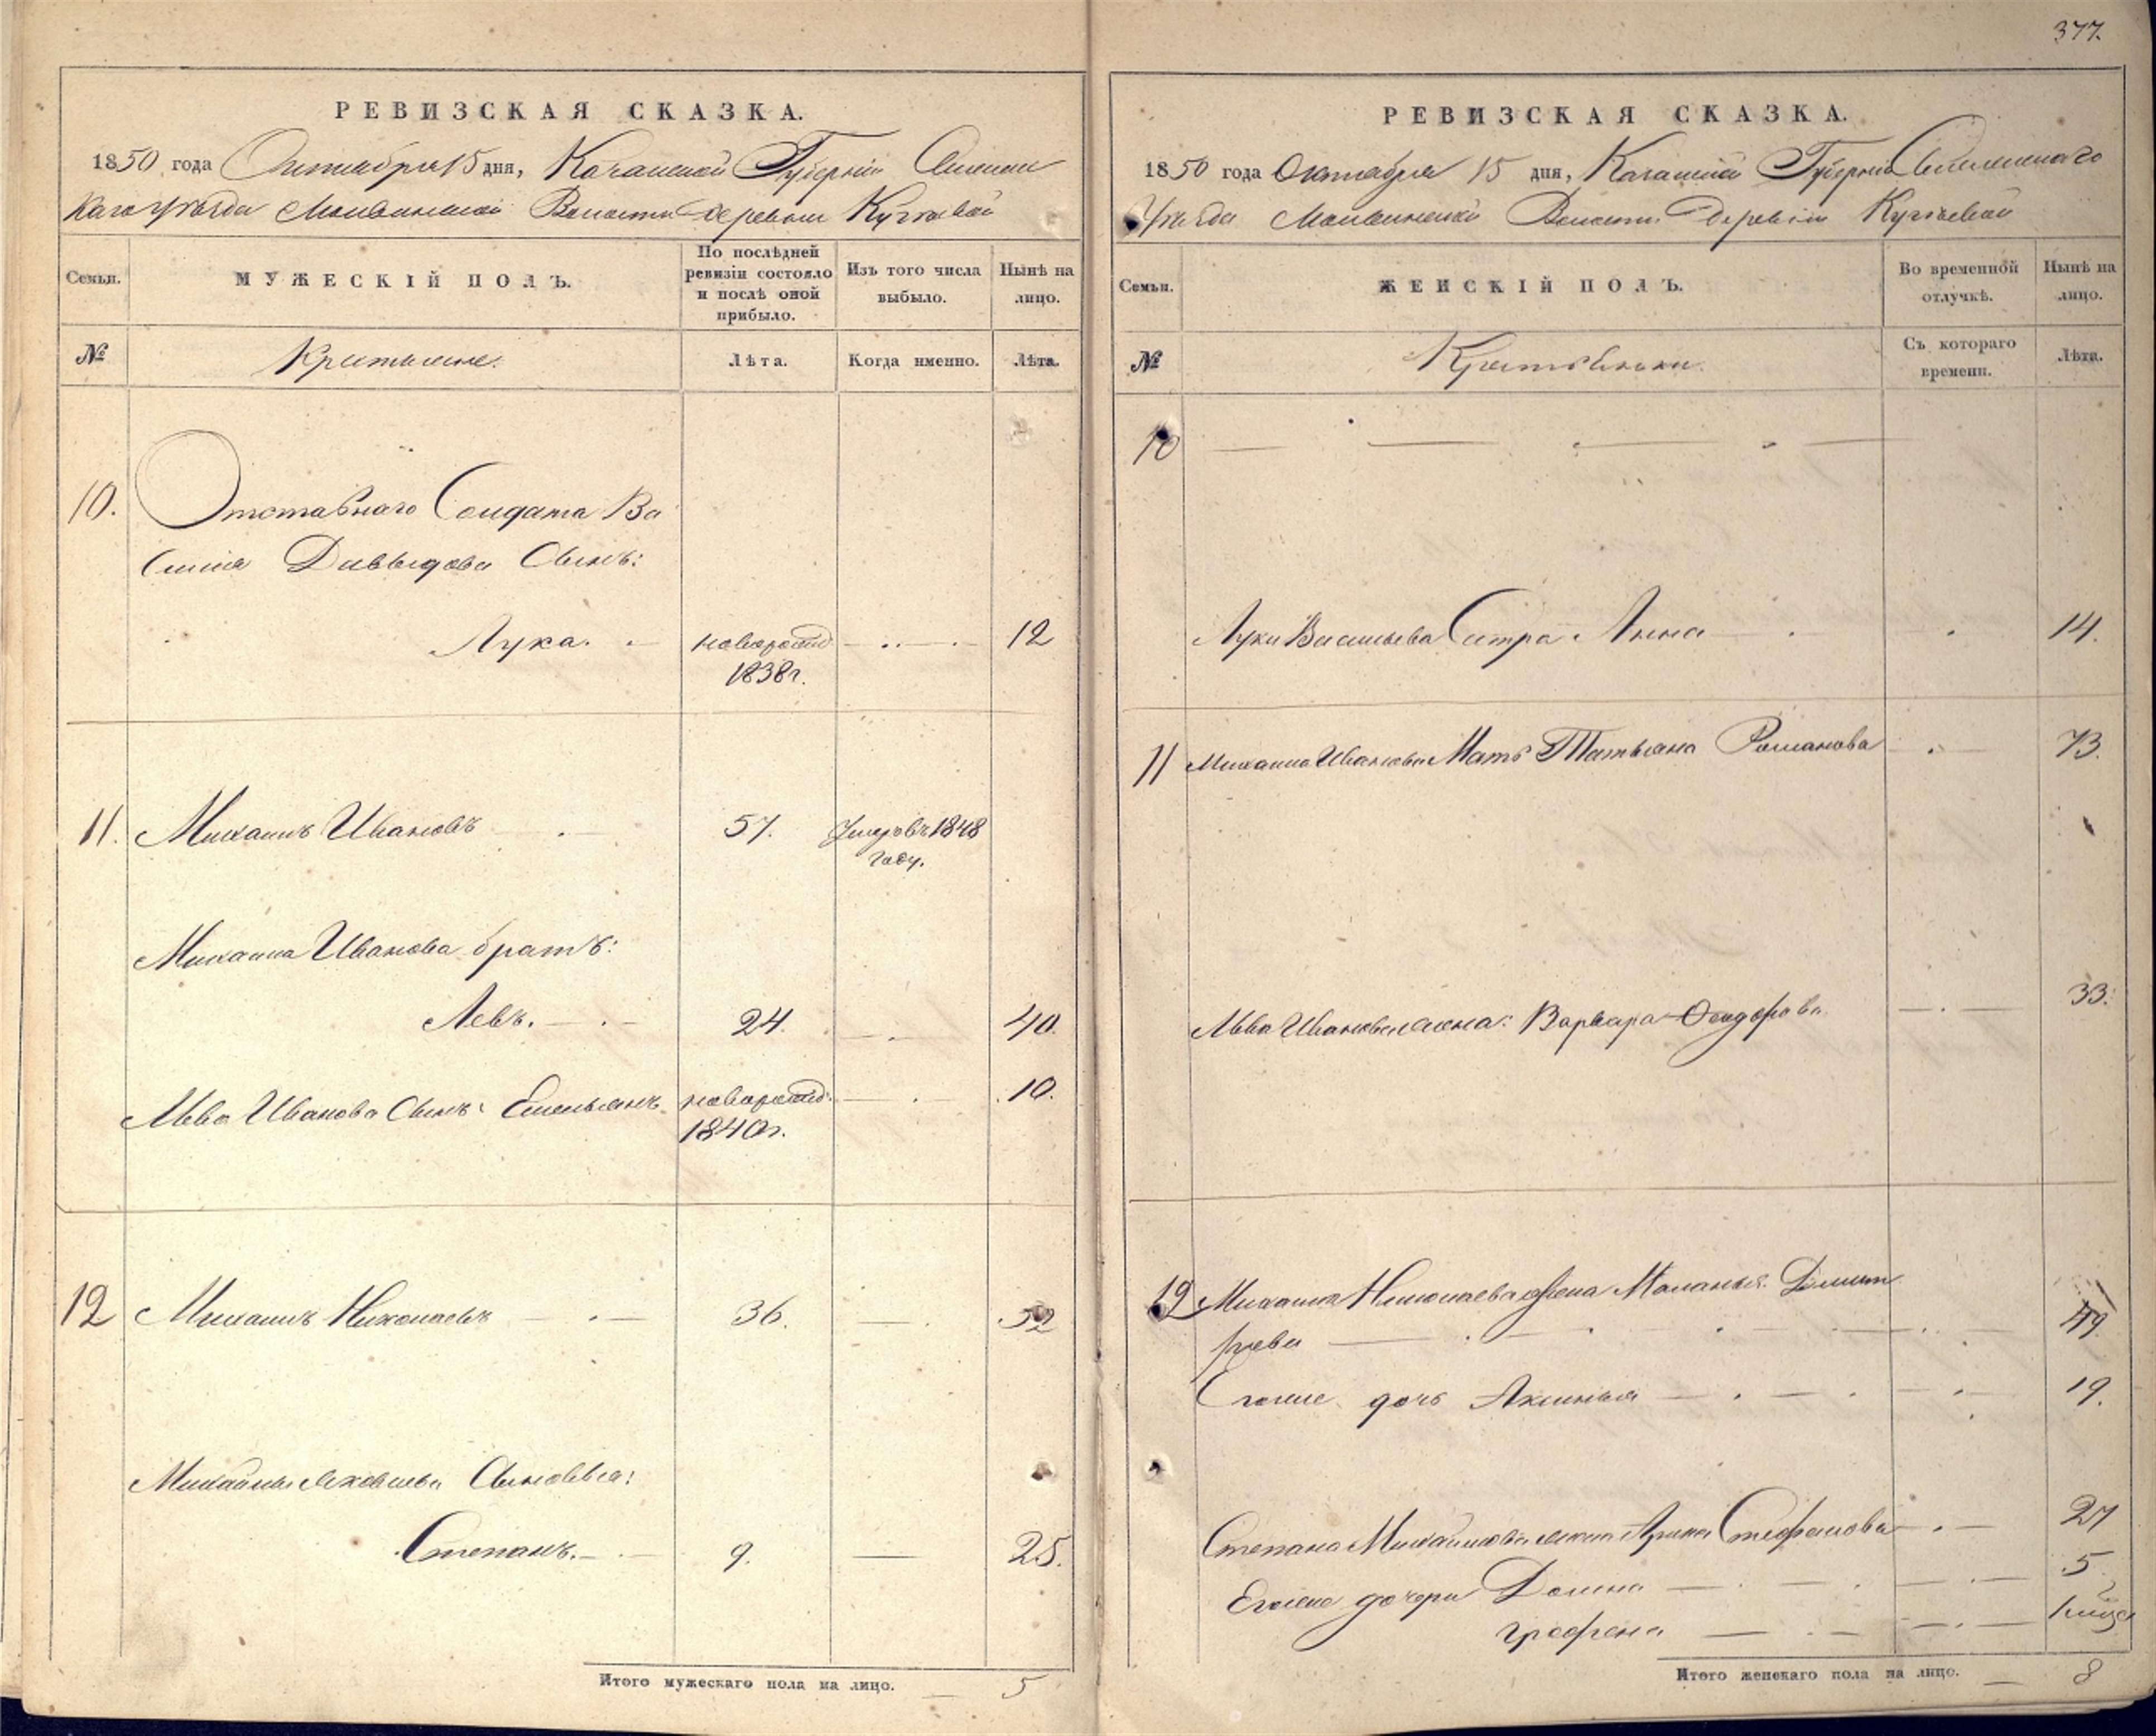 377.
РЕВИЗСКАЯ СКАЗКА.
1850 года Октября 15 дня, Казанской Губернии
каго уѣзда Волости деревни
Семьи.
МУЖЕСКІЙ ПОЛЪ.
По послѣдней ревизіи состояло и послѣ оной прибыло.
Изъ того числа выбыло.
Нынѣ на лицо.
№
Крестьяне.
Лѣта.
Когда именно.
Лѣта.
10.
Отставнаго Солдата Ва
силія Давыдова Сынъ:
Лука. новорожд 12
1838 г.
11. Михаилъ Ивановъ 57. Умеръ въ 1848
году.
Михаила Иванова братъ:
Левъ. 24. 40.
Льва Иванова Сынъ: Емельянъ новорожд: 10.
1840 г.
12 Михаилъ Николаевъ 36. 52
Михайлы Сыновья:
Степанъ. 9. 25.
Итого мужескаго пола на лицо. 5
РЕВИЗСКАЯ СКАЗКА.
1850 года Октября 15 дня, Казанской Губерніи
Уѣзда Волости Деревни
Семьи.
ЖЕНСКІЙ ПОЛЪ.
Во временной отлучкѣ.
Нынѣ на лицо.
№
Съ котораго времени.
Лѣта.
10
Луки Васильева Сестра Анна 14.
11 Михаила Иванова Мать Татьяна Романова 73.
Льва Иванова жена: Варвара Феодорова 33.
12 Михаила Николаева жена Маланья Дмит
ріева 49.
Его же дочь Аксинья 19.
Степана Михайлова жена Арина Стефанова 27
Его же дочери Домна 5
Графена
Итого женскаго пола на лицо. 8